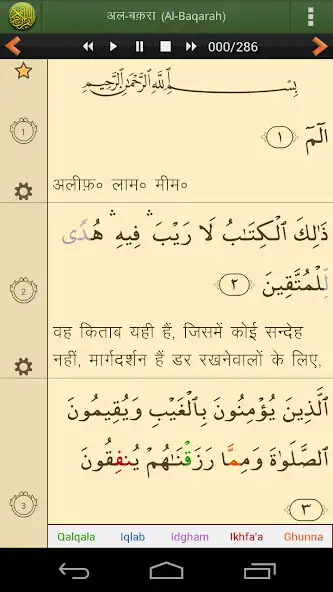 अल-बक़रा (Al-Baqarah)
000/286
بِسْمِ ٱللَّهِ ٱلرَّحْمَٰنِ ٱلرَّحِيمِ
1
الٓمٓ ١
अलीफ़॰ लाम॰ मीम॰
2
ذَٰلِكَ ٱلْكِتَٰبُ لَا رَيْبَ ۛ فِيهِ ۛ هُدًى
لِّلْمُتَّقِينَ ٢
वह किताब यही हैं, जिसमें कोई सन्देह
नहीं, मार्गदर्शन हैं डर रखनेवालों के लिए,
3
ٱلَّذِينَ يُؤْمِنُونَ بِٱلْغَيْبِ وَيُقِيمُونَ
ٱلصَّلَوٰةَ وَمِمَّا رَزَقْنَٰهُمْ يُنفِقُونَ
٣
Qalqala Iqlab Idgham Ikhfa'a Ghunna